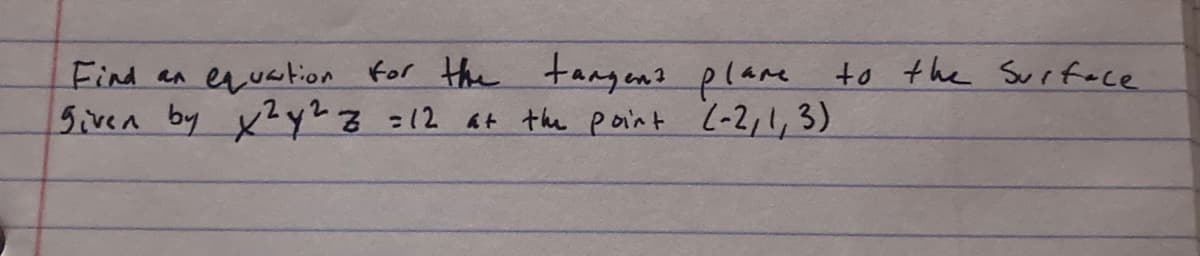 Find an equation for the tangent plane to the surface
given by x²y²z = 12 at the point (-2,1,3)